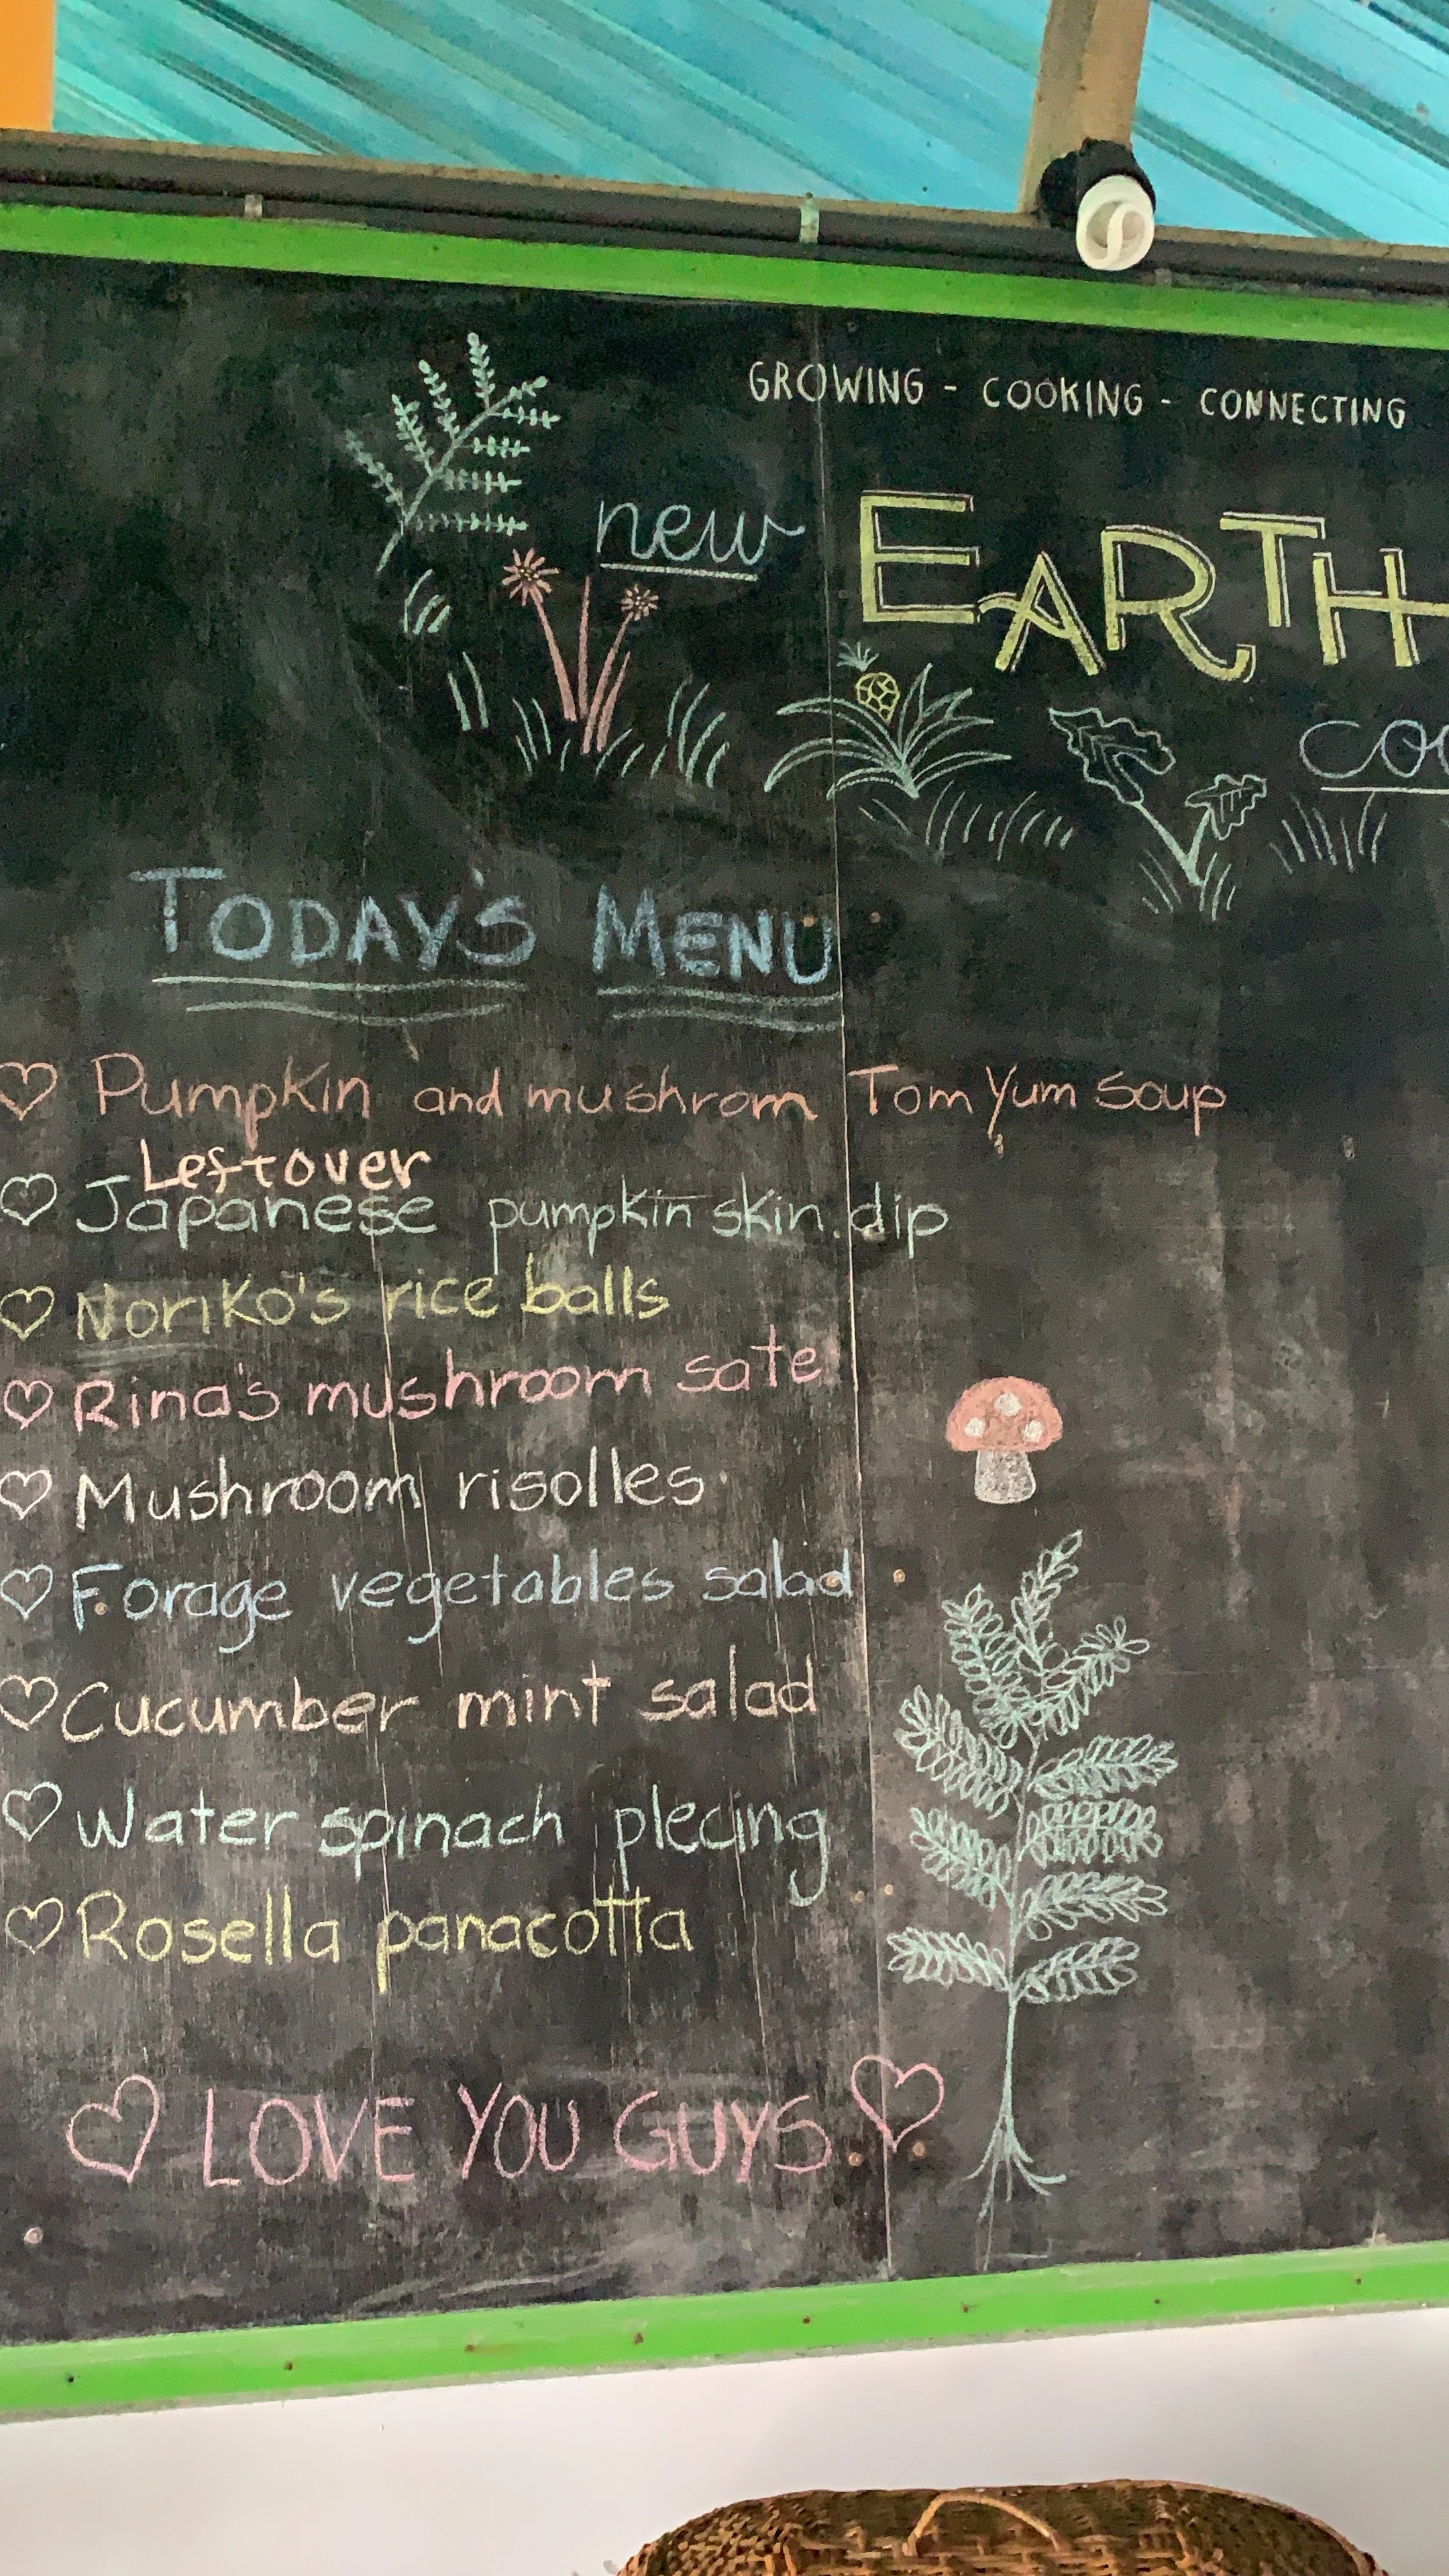 GROWING - COOKING - CONNECTING
new EARTH
Today's Menu
Pumpkin and mushrom Tom Yum Soup
Leftover
Japanese pumpkin skin dip
Noriko's rice balls
Rina's mushroom sate
Mushroom risolles
Forage vegetables salad
Cucumber mint salad
Water spinach plecing
Rosella panacotta
LOVE YOU GUYS